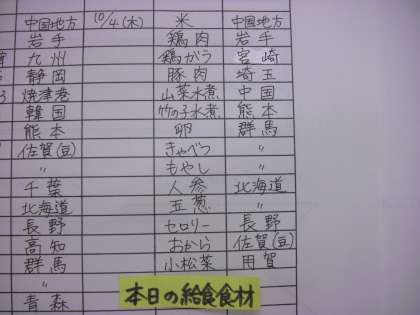 中国地方 10/4(木) 米 中国地方
岩手 鶏肉 岩手
九州 鶏がら 宮崎
静岡 豚肉 埼玉
焼津港 山菜水煮 中国
韓国 竹の子水煮 熊本
熊本 卵 群馬
佐賀(豆) きゃべつ 〃
〃 もやし 〃
千葉 人参 北海道
北海道 玉葱 〃
長野 セロリー 長野
高知 おから 佐賀(豆)
群馬 小松菜 用賀
〃
青森
本日の給食食材